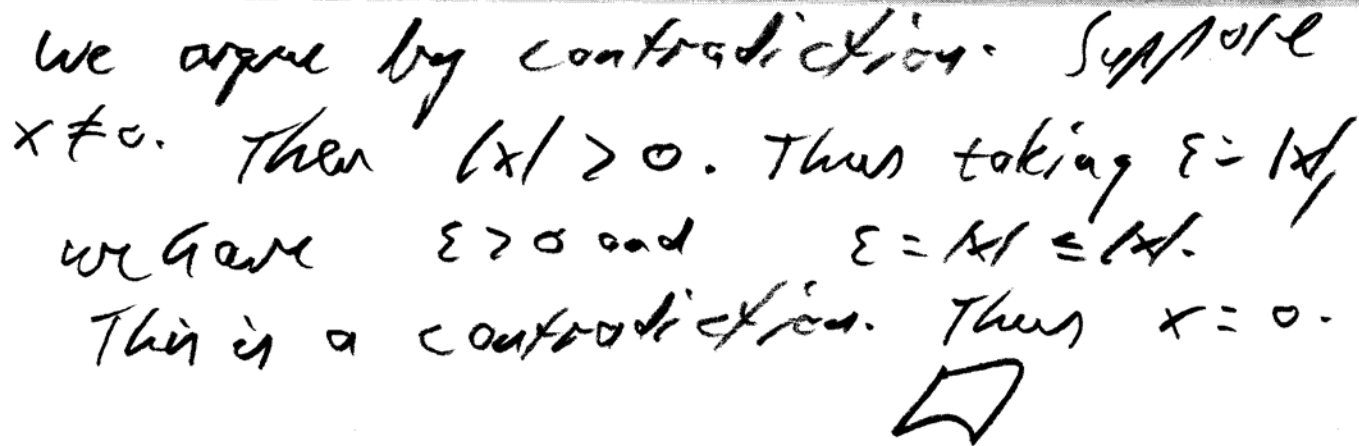 We argue by contradiction. Suppose
x ≠ 0. Then |x| > 0. Thus taking ε = |x|,
we have ε > 0 and ε = |x| ≤ |x|.
This is a contradiction. Thus x = 0.
□